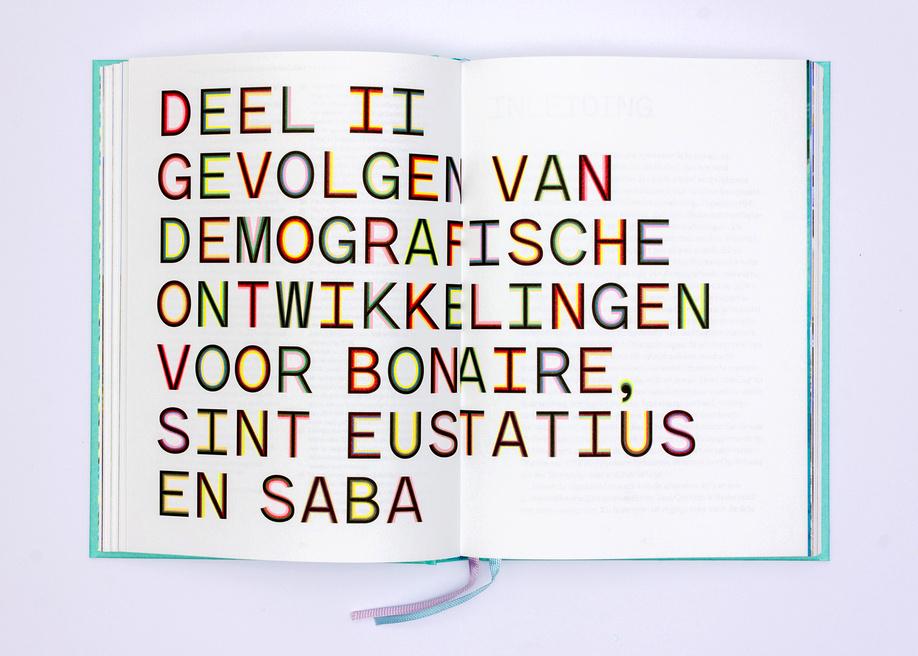 DEEL II
GEVOLGEN VAN
DEMOGRAFISCHE
ONTWIKKELINGEN
VOOR BONAIRE,
SINT EUSTATIUS
EN SABA
INLEIDING